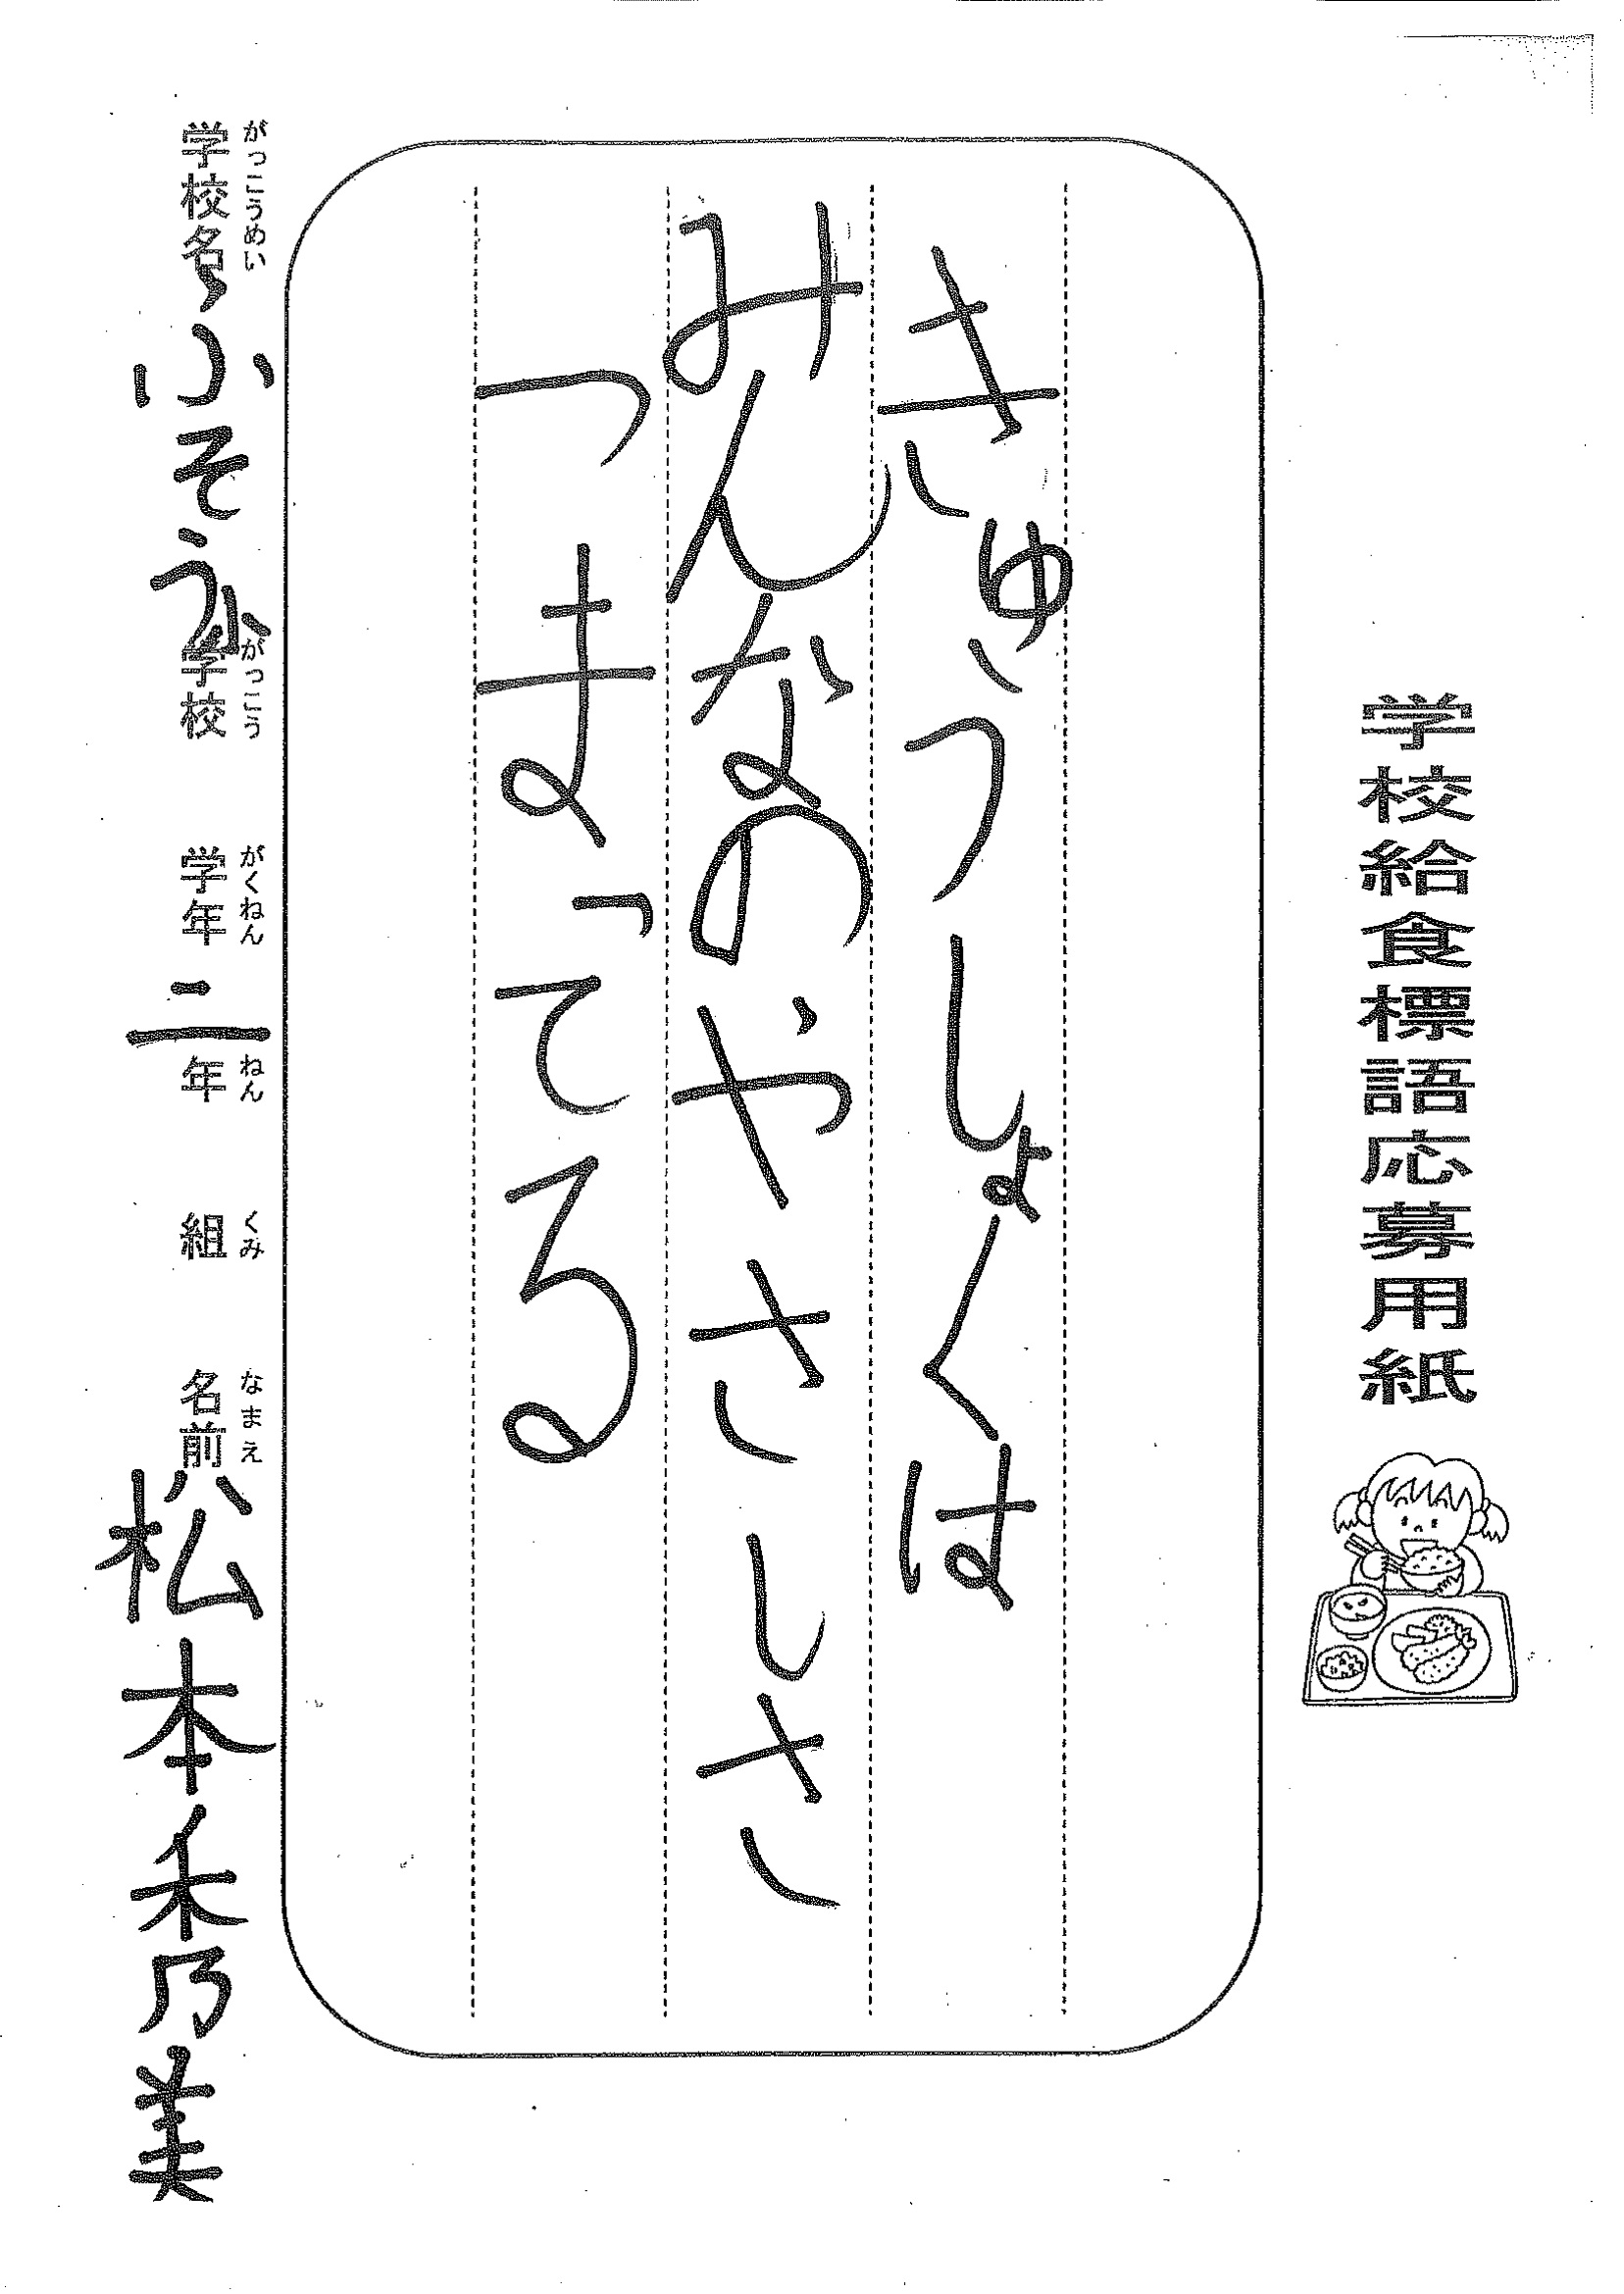 学校給食標語応募用紙
きゅうしょくは
みんなのやさしさ
つまってる
がっこうめい がっこう がくねん ねん くみ なまえ
学校名 ふそう小学校 学年 二年 組 名前 松本禾乃美